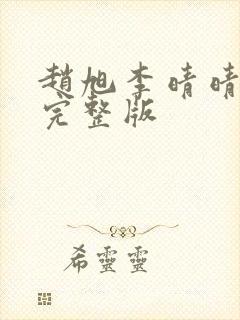 趙旭李晴晴
完整版
希靈靈